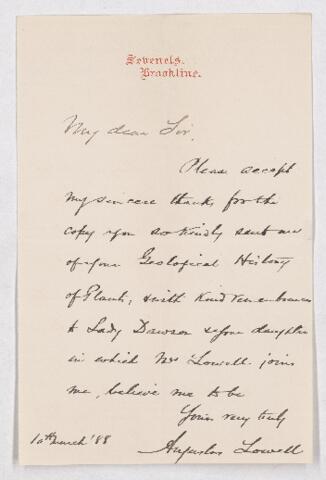 Sevenels.
Brookline.
My dear Sir,
Please accept
my sincere thanks for the
copy you so kindly sent me
of your Geological History
of Plants, & with kind remembrances
to Lady Dawson & your daughter
in which Mrs Lowell joins
me, believe me to be
Yours very truly
Augustus Lowell
10th March '88